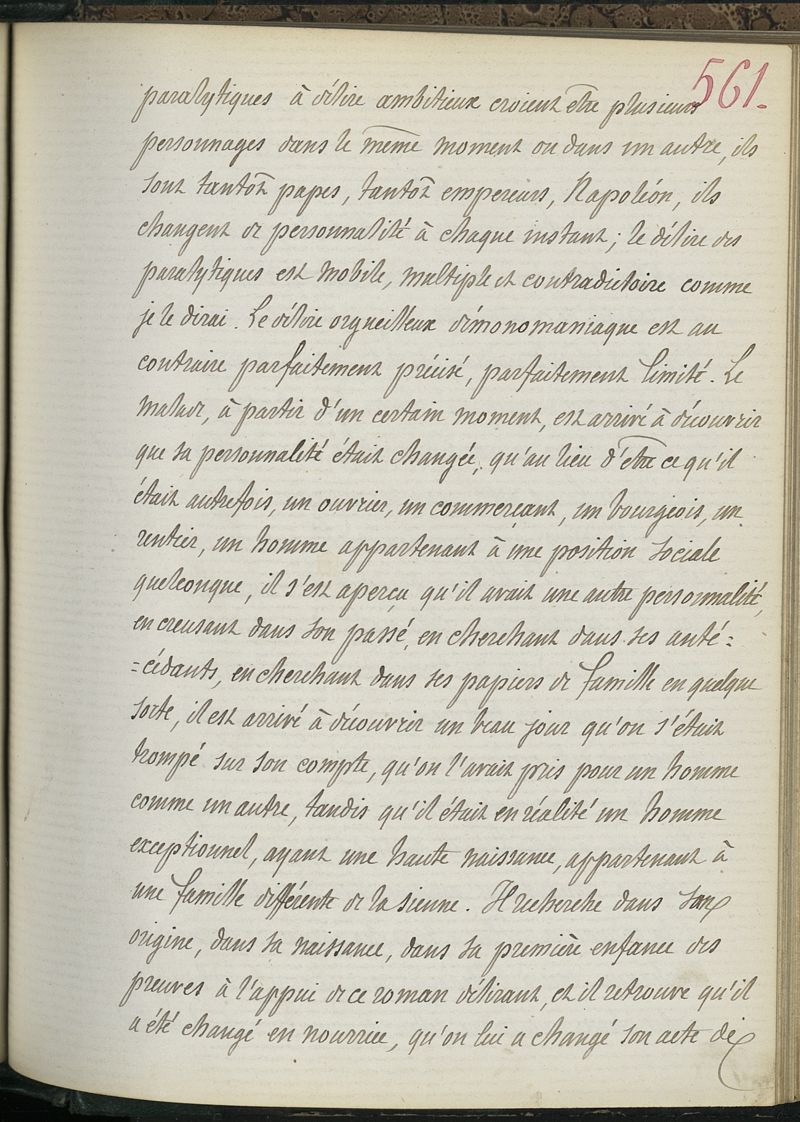 561.
paralytiques à délire ambitieux croient être plusieurs
personnages dans le même moment ou dans un autre, ils
sont tantôt papes, tantôt empereurs, Napoléon, ils
changent de personnalité à chaque instant; le délire des
paralytiques est mobile, multiple et contradictoire comme
je le dirai. Le délire orgueilleux démonomaniaque est au
contraire parfaitement précisé, parfaitement limité. Le
malade, à partir d'un certain moment, est arrivé à découvrir
que sa personnalité était changée, qu'au lieu d'être ce qu'il
était autrefois, un ouvrier, un commerçant, un bourgeois, un
rentier, un homme appartenant à une position sociale
quelconque, il s'est aperçu qu'il avait une autre personnalité,
en creusant dans son passé, en cherchant dans ses anté=
=cédants, en cherchant dans ses papiers de famille en quelque
sorte, il est arrivé à découvrir un beau jour qu'on s'était
trompé sur son compte, qu'on l'avait pris pour un homme
comme un autre, tandis qu'il était en réalité un homme
exceptionnel, ayant une haute naissance, appartenant à
une famille différente de la sienne. Il recherche dans son
origine, dans sa naissance, dans sa première enfance des
preuves à l'appui de ce roman délirant, et il retrouve qu'il
a été changé en nourrice, qu'on lui a changé son acte de